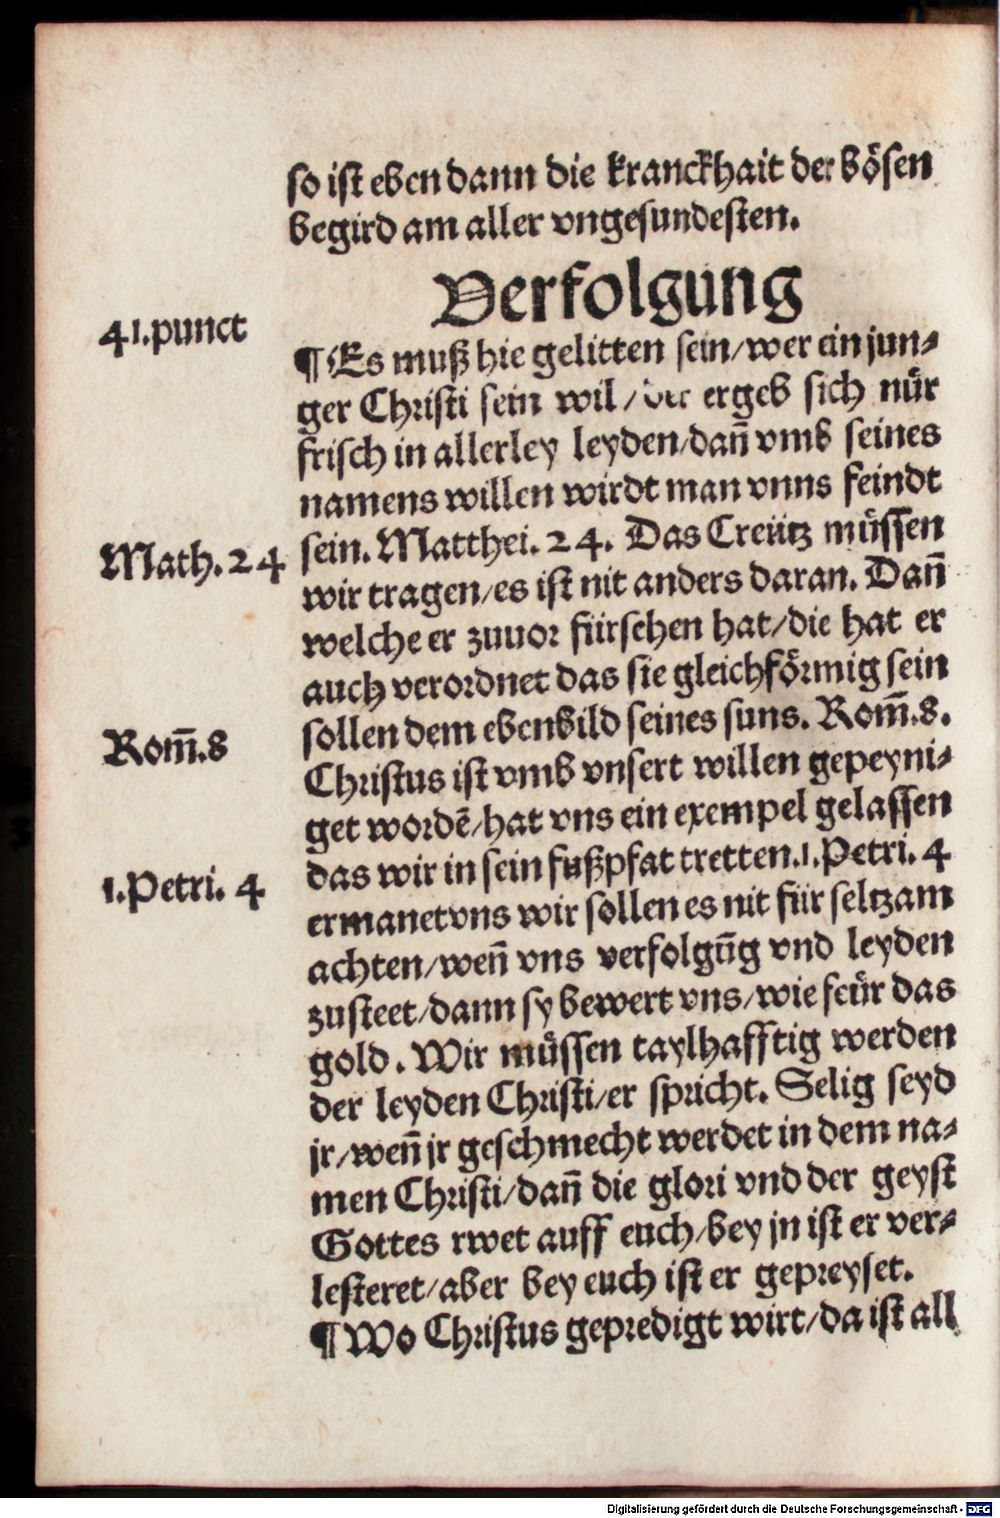 so ist eben dann die kranckhait der bösen
begird am aller vngesundesten.
Verfolgung
41.punct
¶ Es muß hie gelitten sein/wer ein jun⸗
ger Christi sein wil / der ergeb sich nür
frisch in allerley leyden/dañ vmb seines
namens willen wirdt man vnns feindt
Math.24
sein. Matthei. 24. Das Creütz müssen
wir tragen/es ist nit anders daran. Dañ
welche er zuuor fürsehen hat/die hat er
auch verordnet das sie gleichförmig sein
Rom̃.8
sollen dem ebenbild seines suns. Rom̃.8.
Christus ist vmb vnsert willen gepeyni⸗
get wordẽ/hat vns ein exempel gelassen
das wir in sein fußpfat tretten.1.Petri. 4
1.Petri. 4
ermanet vns wir sollen es nit für seltzam
achten/weñ vns verfolgũg vnd leyden
zusteet/dann sy bewert vns/wie feür das
gold. Wir müssen taylhafftig werden
der leyden Christi/er spricht. Selig seyd
jr/weñ jr geschmecht werdet in dem na⸗
men Christi/dañ die glori vnd der geyst
Gottes rwet auff euch/bey jn ist er ver⸗
lesteret/aber bey euch ist er gepreyset.
¶ Wo Christus gepredigt wirt/da ist all
Digitalisierung gefördert durch die Deutsche Forschungsgemeinschaft - DFG